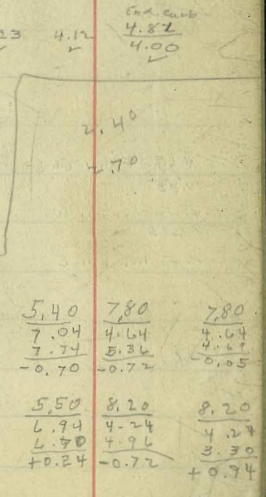 End. Curb
23 4.12 4.82
4.00
2.40
2.70
5,40 7,80 7,80
7.04 4.64 4.64
7.74 5.36 4.69
-0.70 -0.72 -0.05
5,50 8.20 8.20
6.94 4.24 4.24
6.70 4.96 3.30
+0.24 -0.72 +0.94